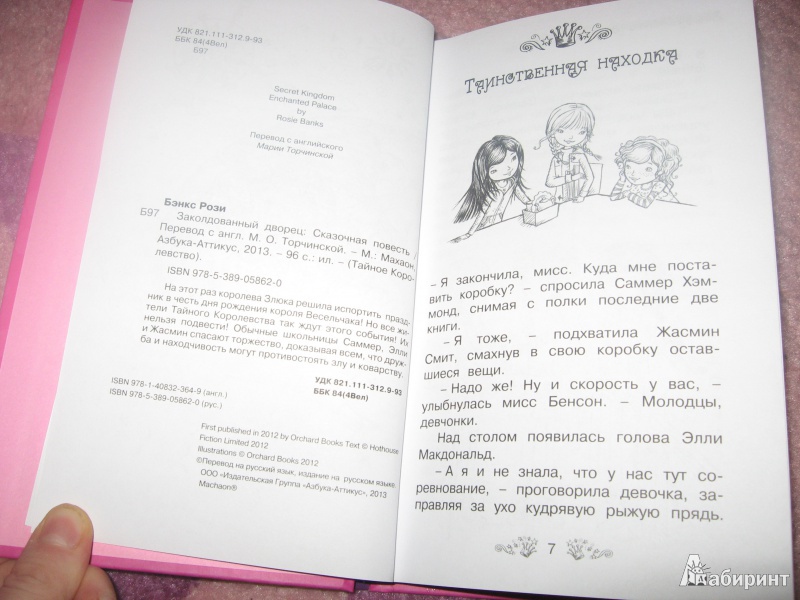 УДК 821.111-312.9-93
ББК 84(4Вел)
Б97
Secret Kingdom
Enchanted Palace
by
Rosie Banks
Перевод с английского
Марии Торчинской
Бэнкс Рози
Б97 Заколдованный дворец: Сказочная повесть /
Перевод с англ. М. О. Торчинской. – М.: Махаон,
Азбука-Аттикус, 2013. – 96 с.: ил. – (Тайное Коро-
левство).
ISBN 978-5-389-05862-0
На этот раз королева Злюка решила испортить празд-
ник в честь дня рождения короля Весельчака! Но все жи-
тели Тайного Королевства так ждут этого события! Их
нельзя подвести! Обычные школьницы Саммер, Элли
и Жасмин спасают торжество, доказывая всем, что друж-
ба и находчивость могут противостоять злу и коварству.
УДК 821.111-312.9-93
ББК 84(4Вел)
ISBN 978-1-40832-364-9 (англ.)
ISBN 978-5-389-05862-0 (рус.)
First published in 2012 by Orchard Books Text © Hothouse
Fiction Limited 2012
Illustrations © Orchard Books 2012
©Перевод на русский язык, издание на русском языке.
ООО «Издательская Группа «Азбука-Аттикус», 2013
Machaon®
Таинственная находка
– Я закончила, мисс. Куда мне поста-
вить коробку? – спросила Саммер Хэм-
монд, снимая с полки последние две
книги.
– Я тоже, – подхватила Жасмин
Смит, смахнув в свою коробку остав-
шиеся вещи.
– Надо же! Ну и скорость у вас, –
улыбнулась мисс Бенсон. – Молодцы,
девчонки.
Над столом появилась голова Элли
Макдональд.
– А я и не знала, что у нас тут со-
ревнование, – проговорила девочка, за-
правляя за ухо кудрявую рыжую прядь.
7
Лабиринт